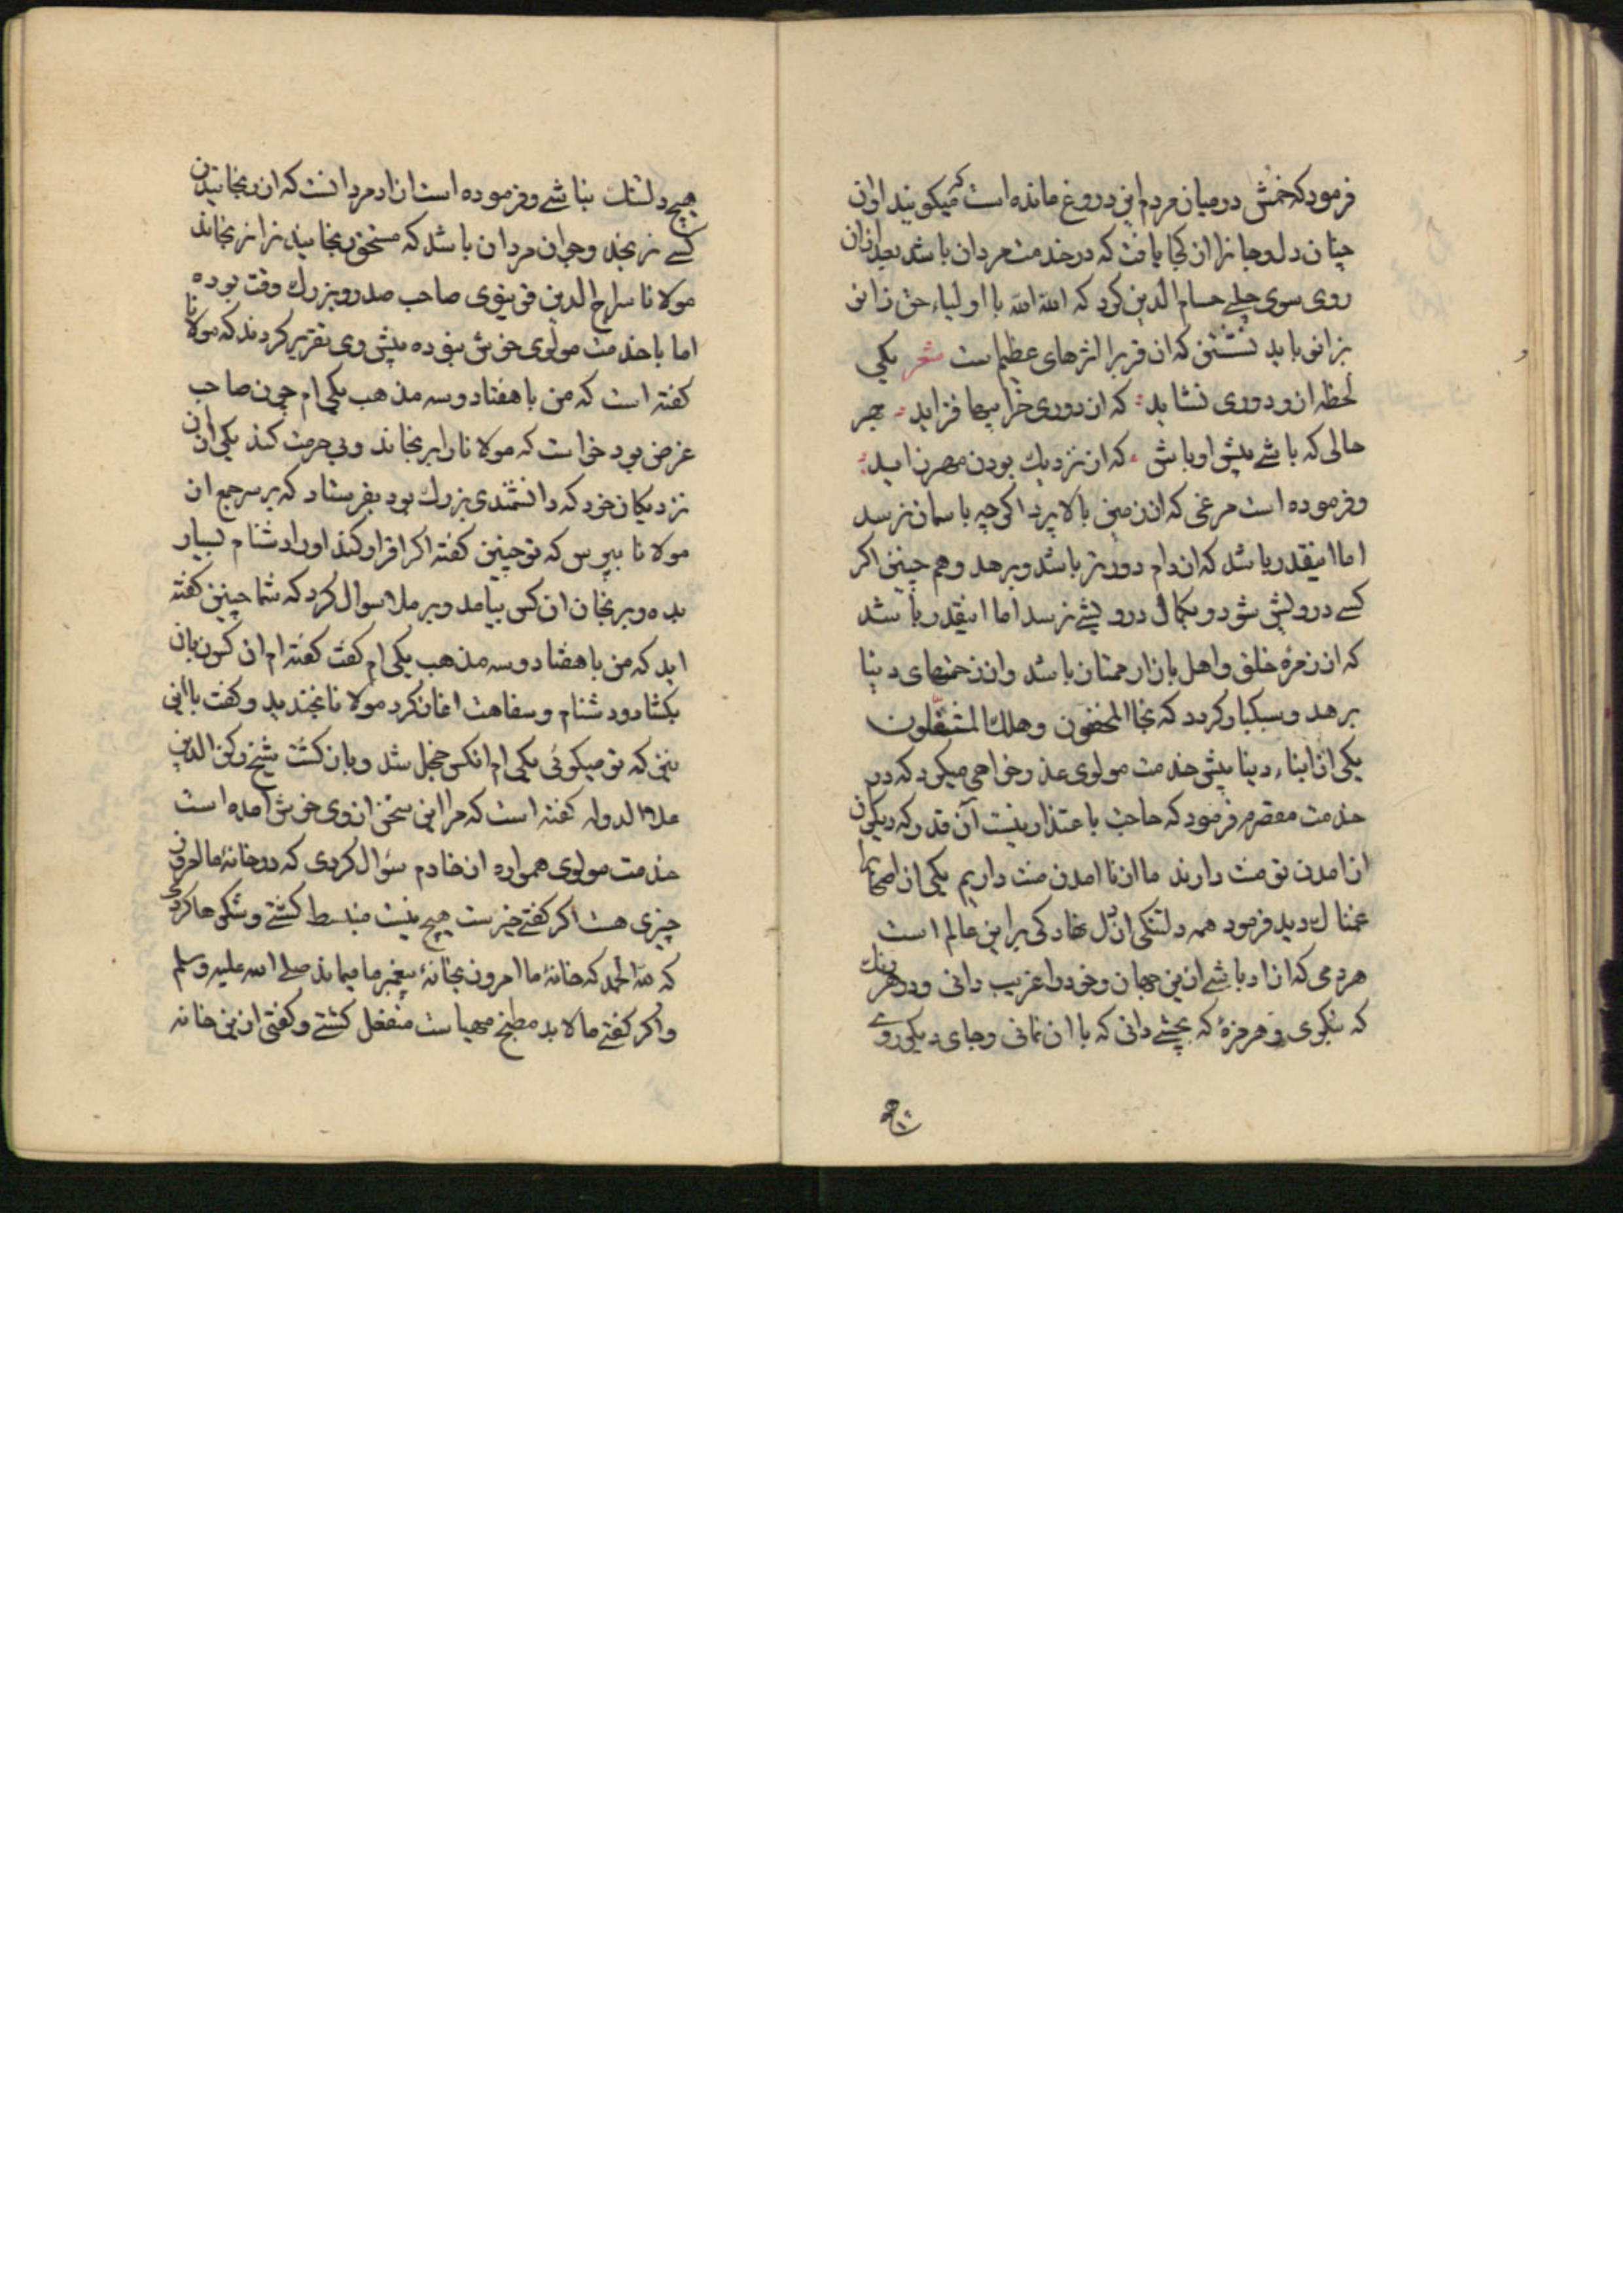 فرمود که خمش در میان مردم این دروغ مانده است که میکویند اوان
چنان دل و جانرا از کجا یافت که در خدمت مردان باشد بعد از ان
روی سوی چلبی حسام الدین کرد که الله الله با اولیاء حق زانو
بزانو باید نشستن که ان قربرا اثرهای عظیم است شعر یکی
لحظه از و دوری نشاید که از دوری خرابیها فزاید بهر
حالی که باشی پیش او باش که از نزدیک بودن مهر زاید
و فرموده است مرغی که از زمین بالا پرد اکرچه باسمان نرسد
اما اینقدر باشد که از دام دورتر باشد و برهد و هم چنین اکر
کسی درویش شود و بکمال درویشی نرسد اما اینقدر باشد
که از زمره خلق و اهل بازار ممتاز باشد و از زحمتهای دنیا
برهد و سبکبار کردد که نجا المخففون و هلک المثقلون
یکی از ابناء دنیا پیش خدمت مولوی عذر خواهی میکرد که در
خدمت مقصرم فرمود که حاجت باعتذار نیست آن قدر که دیکران
از امدن تو منت دارند ما از نا امدن منت داریم یکی از اصحابرا
غمناک دید فرمود همه دلتنکی از دل نهادکی بر این عالم است
هر دمی که ازاد باشی ازین جهان و خود را غریب دانی و در هر رنک
که بنکری و هر مزۀ که بچشی دانی که با ان نمانی و جای دیکر روی
هیچ
هیچ دلتنک نباشی و فرموده است ازاد مرد انست که از رنجانیدن
کسی نرنجد و جوانمرد ان باشد که مستحق رنجانیدنرا نرنجاند
مولانا سراج الدین قونیوی صاحب صدر و بزرک وقت بوده
اما با خدمت مولوی خوش نبوده پیش وی تقریر کردند که مولانا
کفته است که من با هفتاد و سه مذهب یکی ام چون صاحب
غرض بود خواست که مولانا را برنجاند و بی حرمت کند یکی از ان
نزدیکان خود که دانشمندی بزرک بود بفرستاد که بر سر جمع از
مولانا بپرس که تو چنین کفته اکر اقرار کند او را دشنام بسیار
بده و برنجان ان کس بیامد و بر ملا سوال کرد که شما چنین کفته
اید که من با هفتاد و سه مذهب یکی ام کفت کفته ام ان کس زبان
بکشاد و دشنام و سفاهت اغاز کرد مولانا بخندید و کفت با این
نیز که تو میکوئی یکی ام انکس خجل شد و باز کشت شیخ رکن الدین
علاء الدوله کفته است که مرا این سخن از وی خوش امده است
خدمت مولوی همواره از خادم سؤال کردی که در خانۀ ما امروز
چیزی هست اکر کفتی خیرست هیچ نیست منبسط کشتی و شکرها کردی
که لله الحمد که خانۀ ما امروز بخانۀ پیغمبر ما میماند صلی الله علیه وسلم
و اکر کفتی ما لابد مطبخ مهیاست منفعل کشتی و کفتی ازین خانه